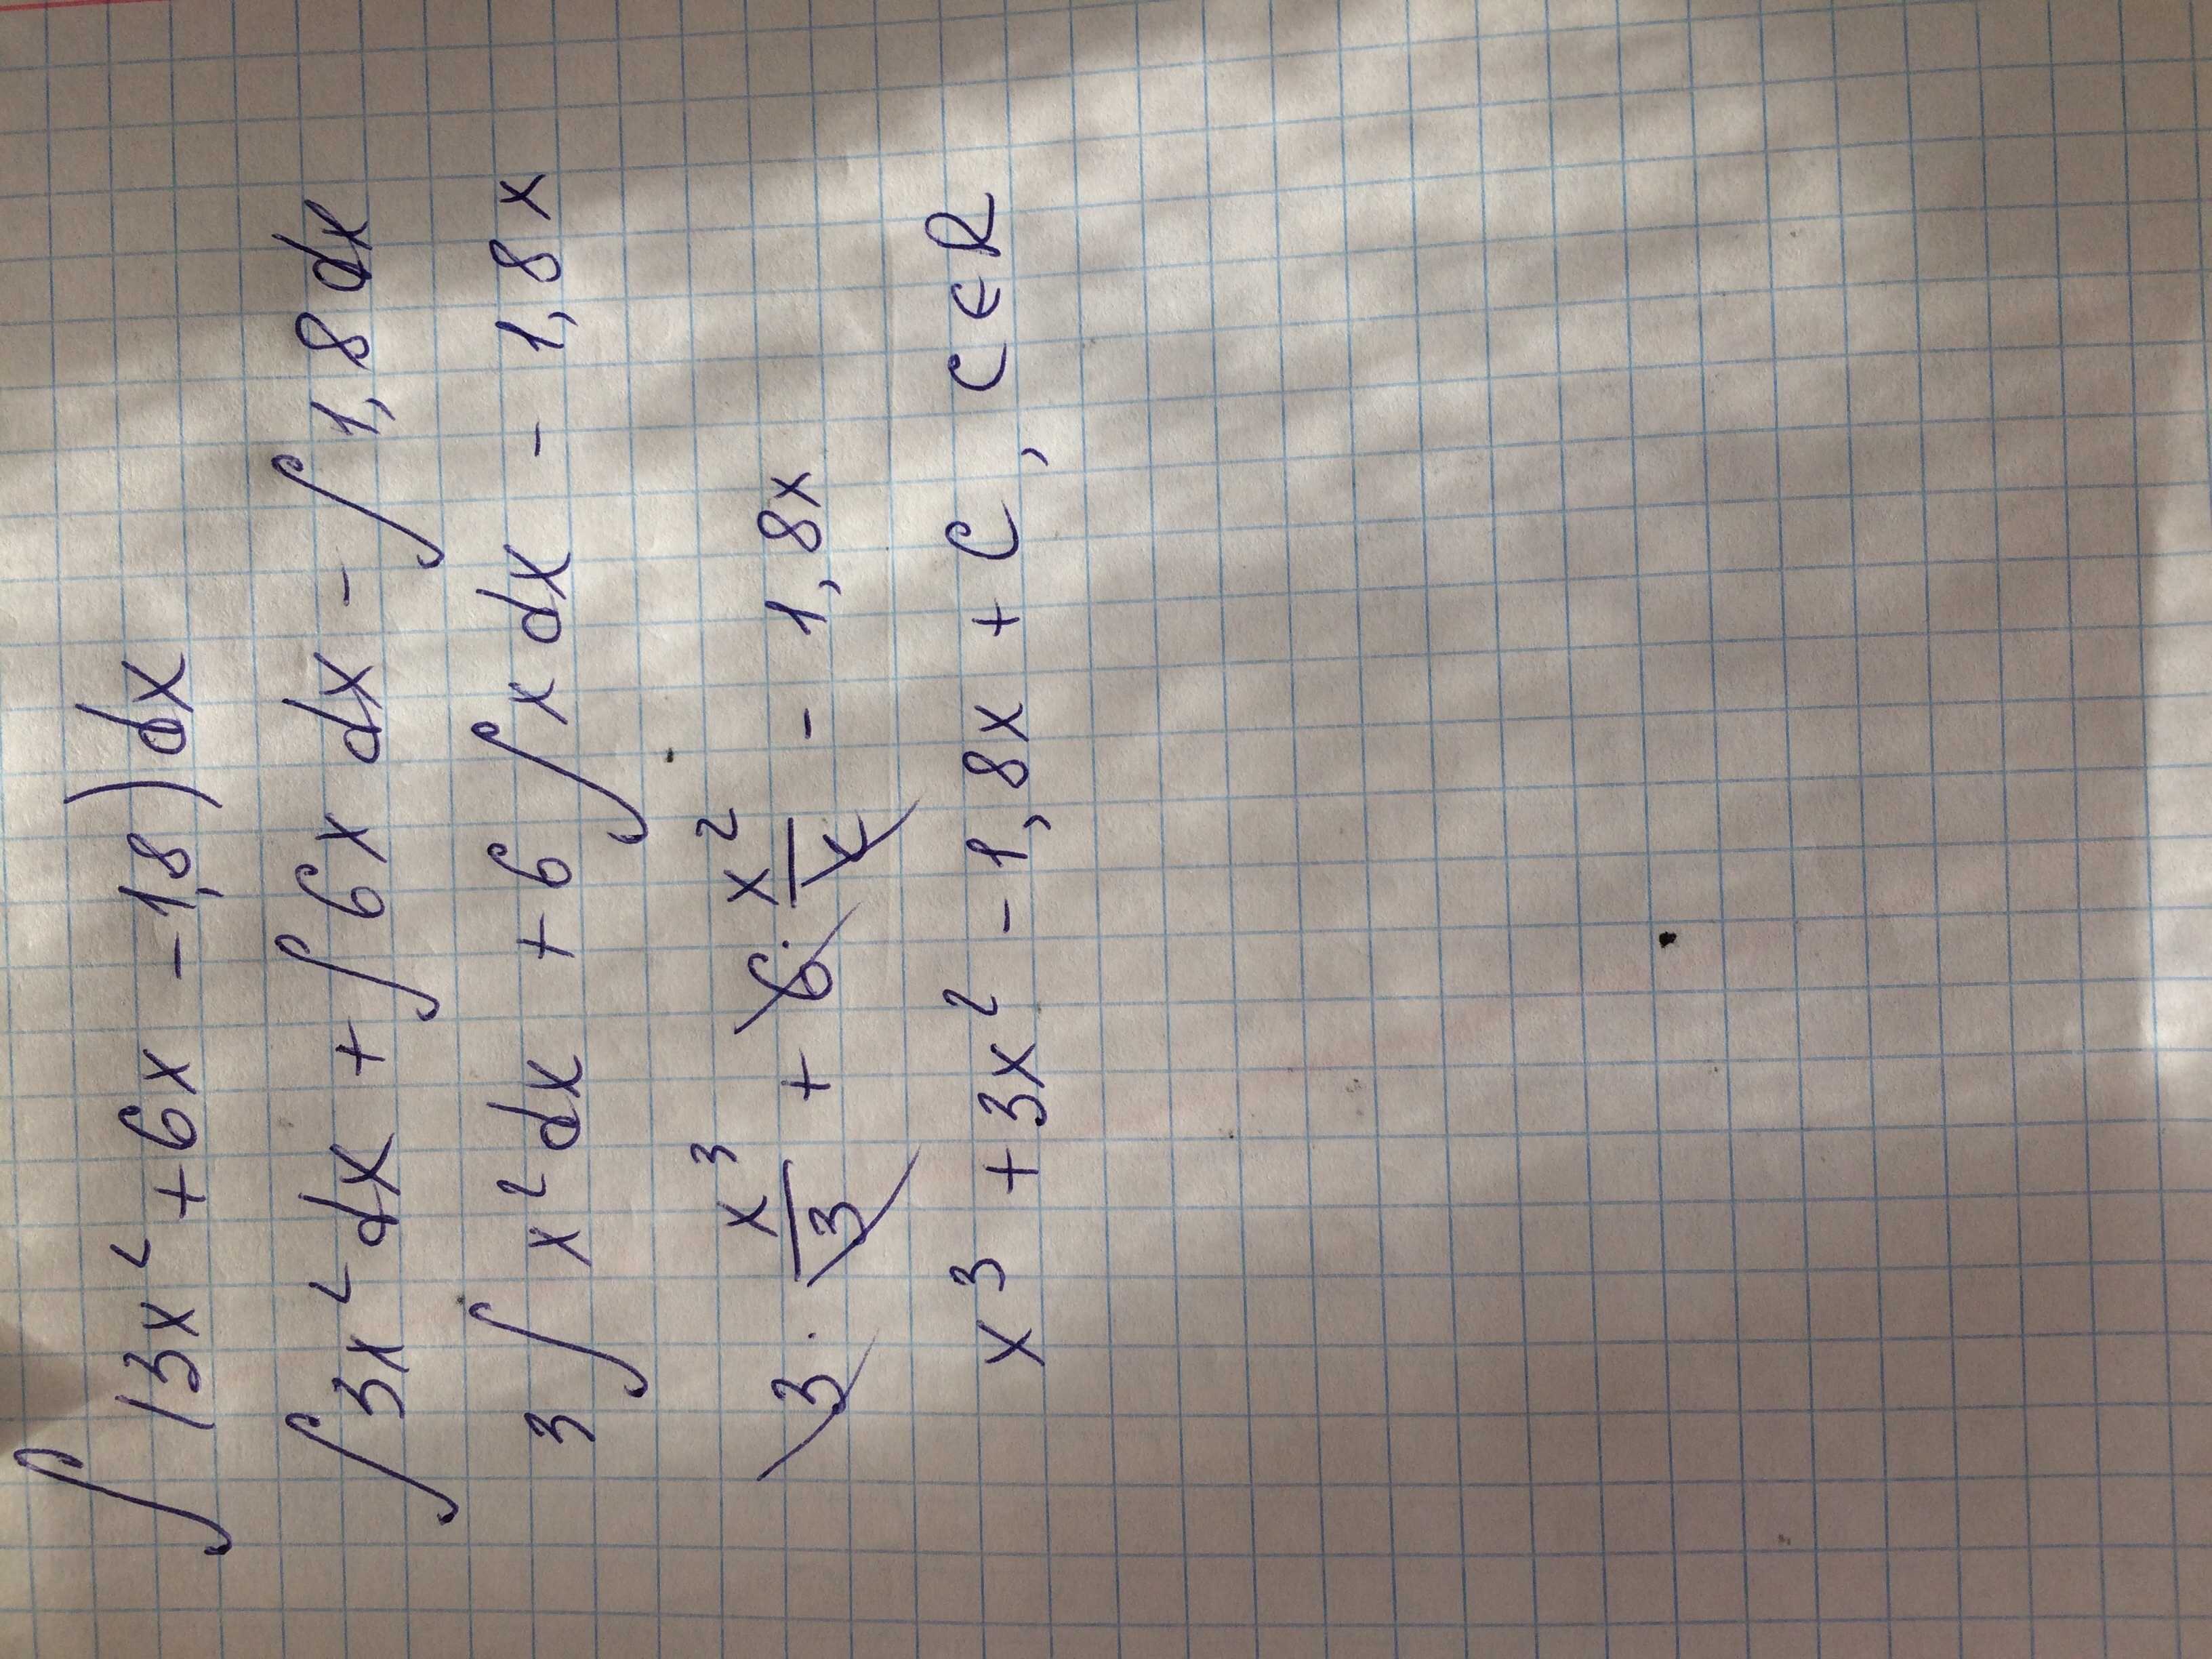 ∫(3x²+6x-1,8)dx
∫3x²dx+∫6xdx-∫1,8dx
3∫x²dx+6∫xdx-1,8x
3·x³/3+6·x²/2-1,8x
x³+3x²-1,8x+C, C∈R